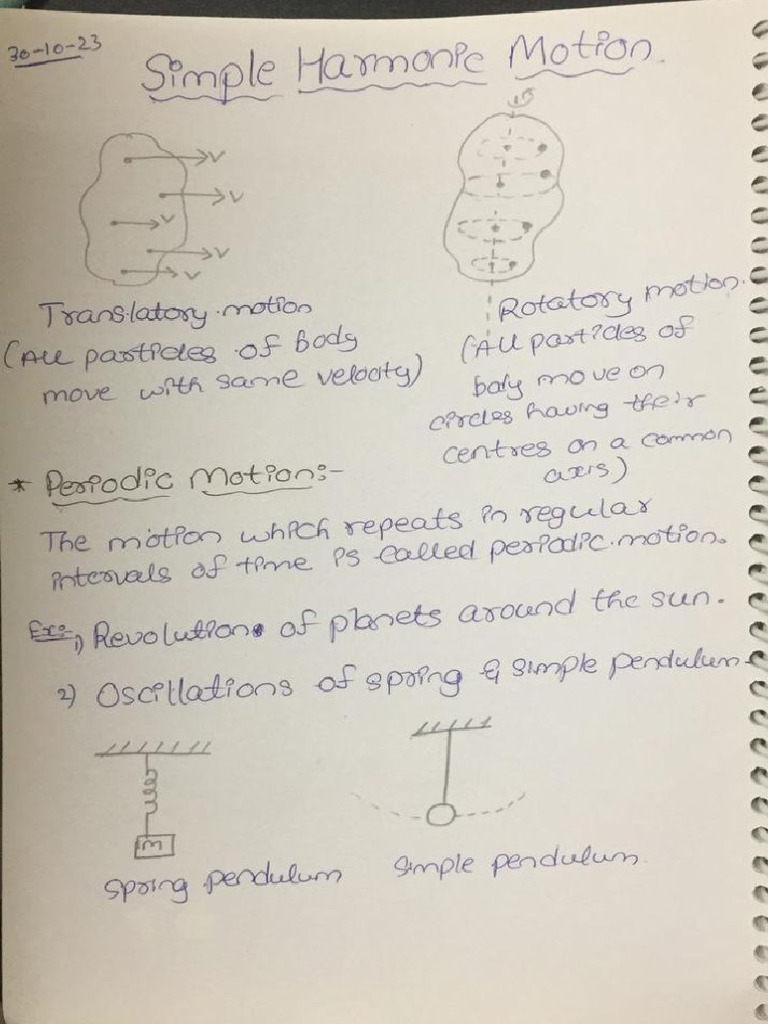 30-10-23
Simple Harmonic Motion.
V
V
V
V
V
Translatory motion
(All particles of body
move with same velocity)
Rotatory motion.
(All particles of
body move on
circles having their
centres on a common
axis)
* Periodic Motion:-
The motion which repeats in regular
intervals of time is called periodic motion.
Ex:- 1) Revolution of planets around the sun.
2) Oscillations of spring & simple pendulum
m
spring pendulum
simple pendulum.